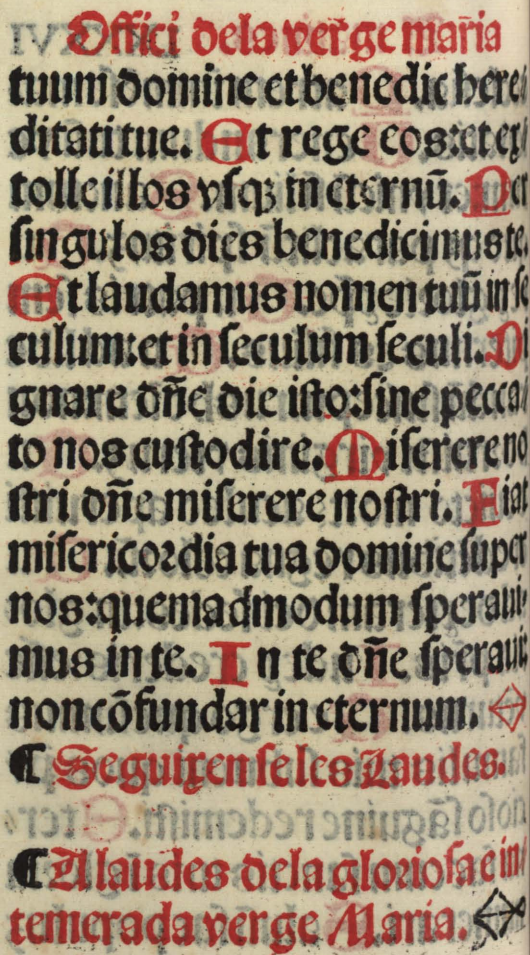 Offici dela verge maria
tuum domine et benedic here
ditati tue. Et rege eos:et ex
tolle illos vsqꝫ in eternū. Per
singulos dies benedicimus te.
Et laudamus nomen tuū in se
culum:et in seculum seculi. Di
gnare dñe die isto:sine pecca
to nos custodire. Miserere no
stri dñe miserere nostri. Fiat
misericordia tua domine super
nos:quemadmodum speraui
mus in te. In te dñe speraui:
non cōfundar in eternum.
¶ Seguixen se les Laudes.
¶ A laudes dela gloriosa e in
temerada verge Maria.